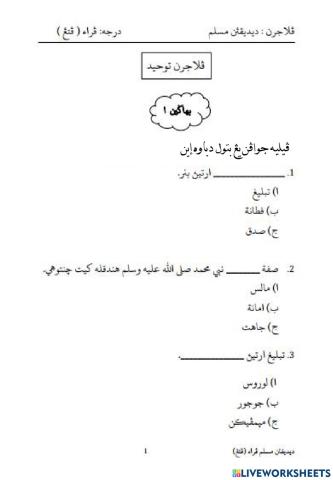 ڤلاجرن : ديديقڤن مسلم	درجه: ڤراء ( ڤتڠ )
ڤلاجرن توحيد
بهاڬين ١
ڤيليه جواڤن يڠ بتول دباوه اين
1. ____________ ارتيڽ بنر.
ا) تبليغ
ب) فطانة
ج) صدق
2. صفة ______ نبي محمد صلى الله عليه وسلم هندقله كيت چنتوهي.
ا) مالس
ب) امانة
ج) جاهت
3. تبليغ ارتيڽ ____________.
ا) لوروس
ب) جوجور
ج) مڽمڤيكن
ديديقان مسلم ڤراء (ڤتڠ)	1
LIVEWORKSHEETS